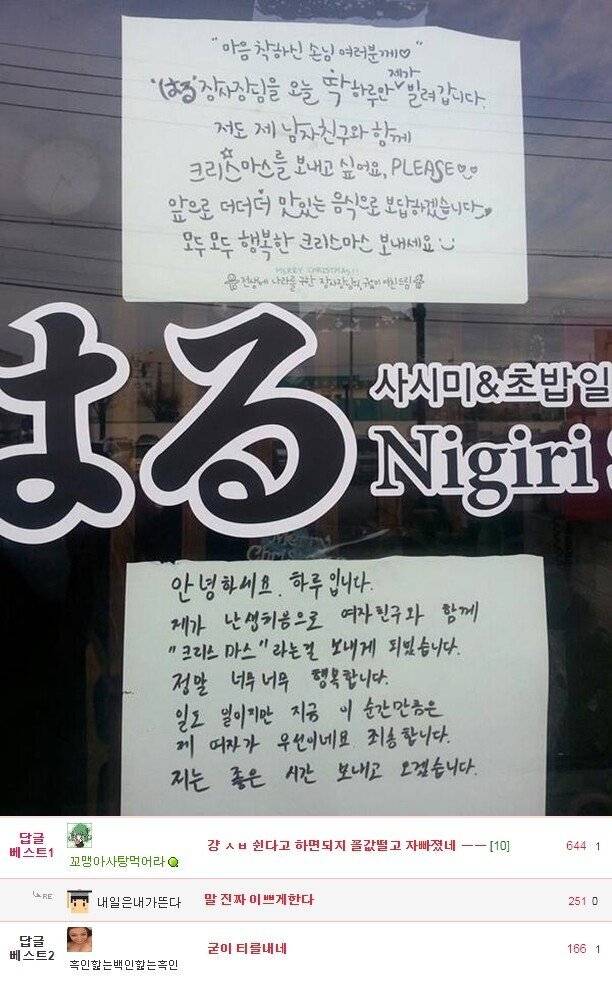 "마음 착하신 손님 여러분께♡"
'はる' 장사장님을 오늘 딱 하루만 제가 빌려갑니다.
저도 제 남자친구와 함께
크리스마스를 보내고 싶어요, PLEASE
앞으로 더더더 맛있는 음식으로 보답하겠습니다
모두모두 행복한 크리스마스 보내세요
MERRY CHRISTMAS!!
전생에 나라를 구한 장사장님의 여친드림
はる
사시미&초밥일
Nigiri
안녕하세요. 하루입니다.
제가 난생처음으로 여자친구와 함께
"크리스마스"라는걸 보내게 되었습니다.
정말 너무너무 행복합니다.
일도 일이지만 지금 이 순간만큼은
제 여자가 우선이네요 죄송합니다.
저는 좋은 시간 보내고 오겠습니다.
답글
베스트1
꼬맹아사탕먹어라
걍 ㅅㅂ 쉰다고 하면되지 꼴값떨고 자빠졌네 ㅡㅡ [10]
644 1
RE
내일은내가뜬다
말 진짜 이쁘게한다
251 0
답글
베스트2
흑인핥는백인핥는흑인
굳이 티를내네
166 1